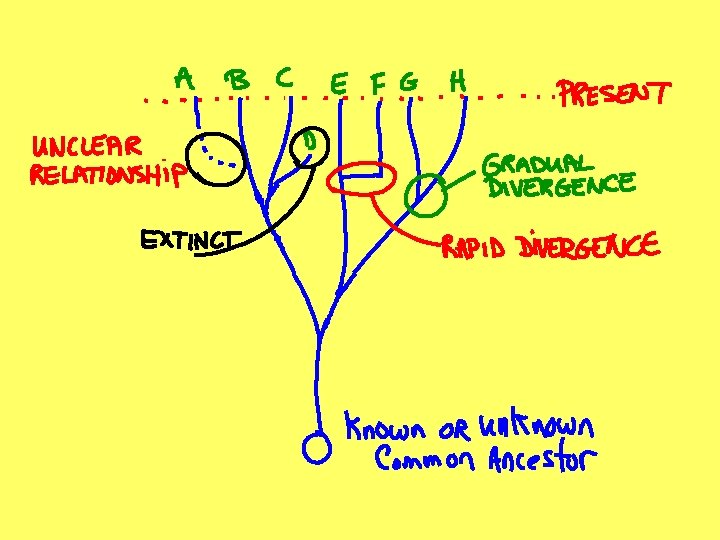 A B C E F G H
PRESENT
D
UNCLEAR
RELATIONSHIP
GRADUAL
DIVERGENCE
EXTINCT
RAPID DIVERGENCE
Known OR UnKnown
Common Ancestor